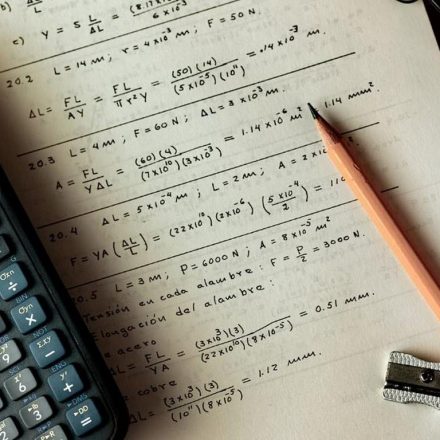 b)
ΔL (8.17×10
6×10⁻³
c) Y = 5 L/ΔL
20.2 L = 14 m ; r = 4×10⁻³ m ; F = 50 N.
ΔL = FL/AY = FL/πr²Y = (50)(14)/(5×10⁻⁵)(10¹¹) = .14×10⁻³ m.
20.3 L = 4 m ; F = 60 N ; ΔL = 3×10⁻³ m.
A = FL/YΔL = (60)(4)/(7×10¹⁰)(3×10⁻³) = 1.14×10⁻⁶ m² 1.14 mm²
20.4 ΔL = 5×10⁻⁴ m ; L = 2 m ; A = 2×10
F = YA (ΔL/L) = (22×10¹⁰)(2×10⁻⁶) (5×10⁻⁴/2) = 11
0.5 L = 3 m ; P = 6000 N ; A = 8×10⁻⁵ m²
Tensión en cada alambre : F = P/2 = 3000 N.
Elongación del alambre :
acero
ΔL = FL/YA = (3×10³)(3)/(22×10¹⁰)(8×10⁻⁵) = 0.51 mm.
cobre
ΔL = (3×10³)(3)/(10¹¹)(8×10⁻⁵) = 1.12 mm.
OXn
÷
BIN
CXn
×
Σx,y
−
÷
+
=
9
6
3